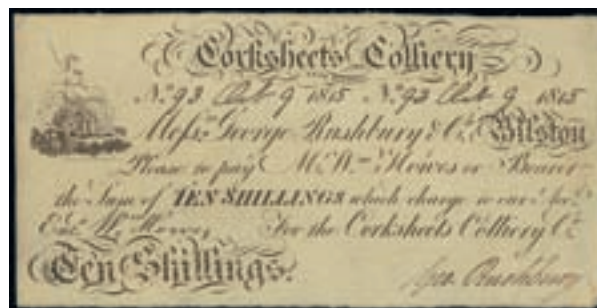 Corksheets Colliery
No. 93 Oct 9 1815 No. 93 Oct 9 1815
Messrs. George Rushbury & Co. Bilston
Please to pay Mr. Wm. Howes or Bearer
the Sum of TEN SHILLINGS which charge to our
Entd. Wm. Howes For the Corksheets Colliery Co.
Ten Shillings. Geo. Rushbury